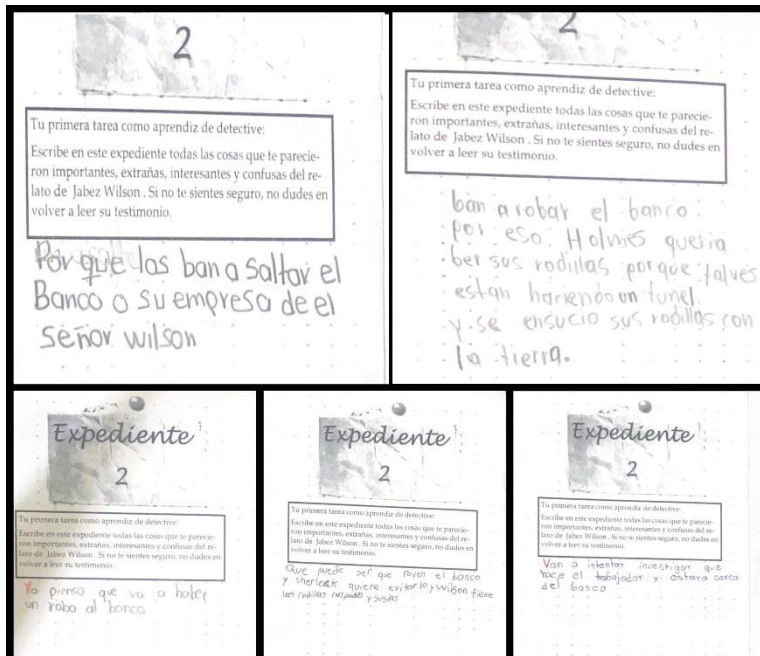 2
Tu primera tarea como aprendiz de detective:
Escribe en este expediente todas las cosas que te parecie-
ron importantes, extrañas, interesantes y confusas del re-
lato de Jabez Wilson . Si no te sientes seguro, no dudes en
volver a leer su testimonio.
Por que los ban a Saltar el
Banco o su empresa de el
señor wilson
2
Tu primera tarea como aprendiz de detective:
Escribe en este expediente todas las cosas que te parecie-
ron importantes, extrañas, interesantes y confusas del re-
lato de Jabez Wilson . Si no te sientes seguro, no dudes en
volver a leer su testimonio.
ban a robar el banco.
por eso. Holmes queria
ber sus rodillas porque talves
estan haciendo un tunel.
y se ensucio sus rodillas con
la tierra.
Expediente
2
Tu primera tarea como aprendiz de detective:
Escribe en este expediente todas las cosas que te parecie-
ron importantes, extrañas, interesantes y confusas del re-
lato de Jabez Wilson . Si no te sientes seguro, no dudes en
volver a leer su testimonio.
Yo pienso que va a haber
un robo al banco
Expediente
2
Tu primera tarea como aprendiz de detective:
Escribe en este expediente todas las cosas que te parecie-
ron importantes, extrañas, interesantes y confusas del re-
lato de Jabez Wilson . Si no te sientes seguro, no dudes en
volver a leer su testimonio.
Que puede ser que roven el banco
y sherlock quiere evitarlo y Wilson tiene
las rodillas y susias
Expediente
2
Tu primera tarea como aprendiz de detective:
Escribe en este expediente todas las cosas que te parecie-
ron importantes, extrañas, interesantes y confusas del re-
lato de Jabez Wilson . Si no te sientes seguro, no dudes en
volver a leer su testimonio.
Van a intentar investigar que
hace el trabajador y estara cerca
del banco